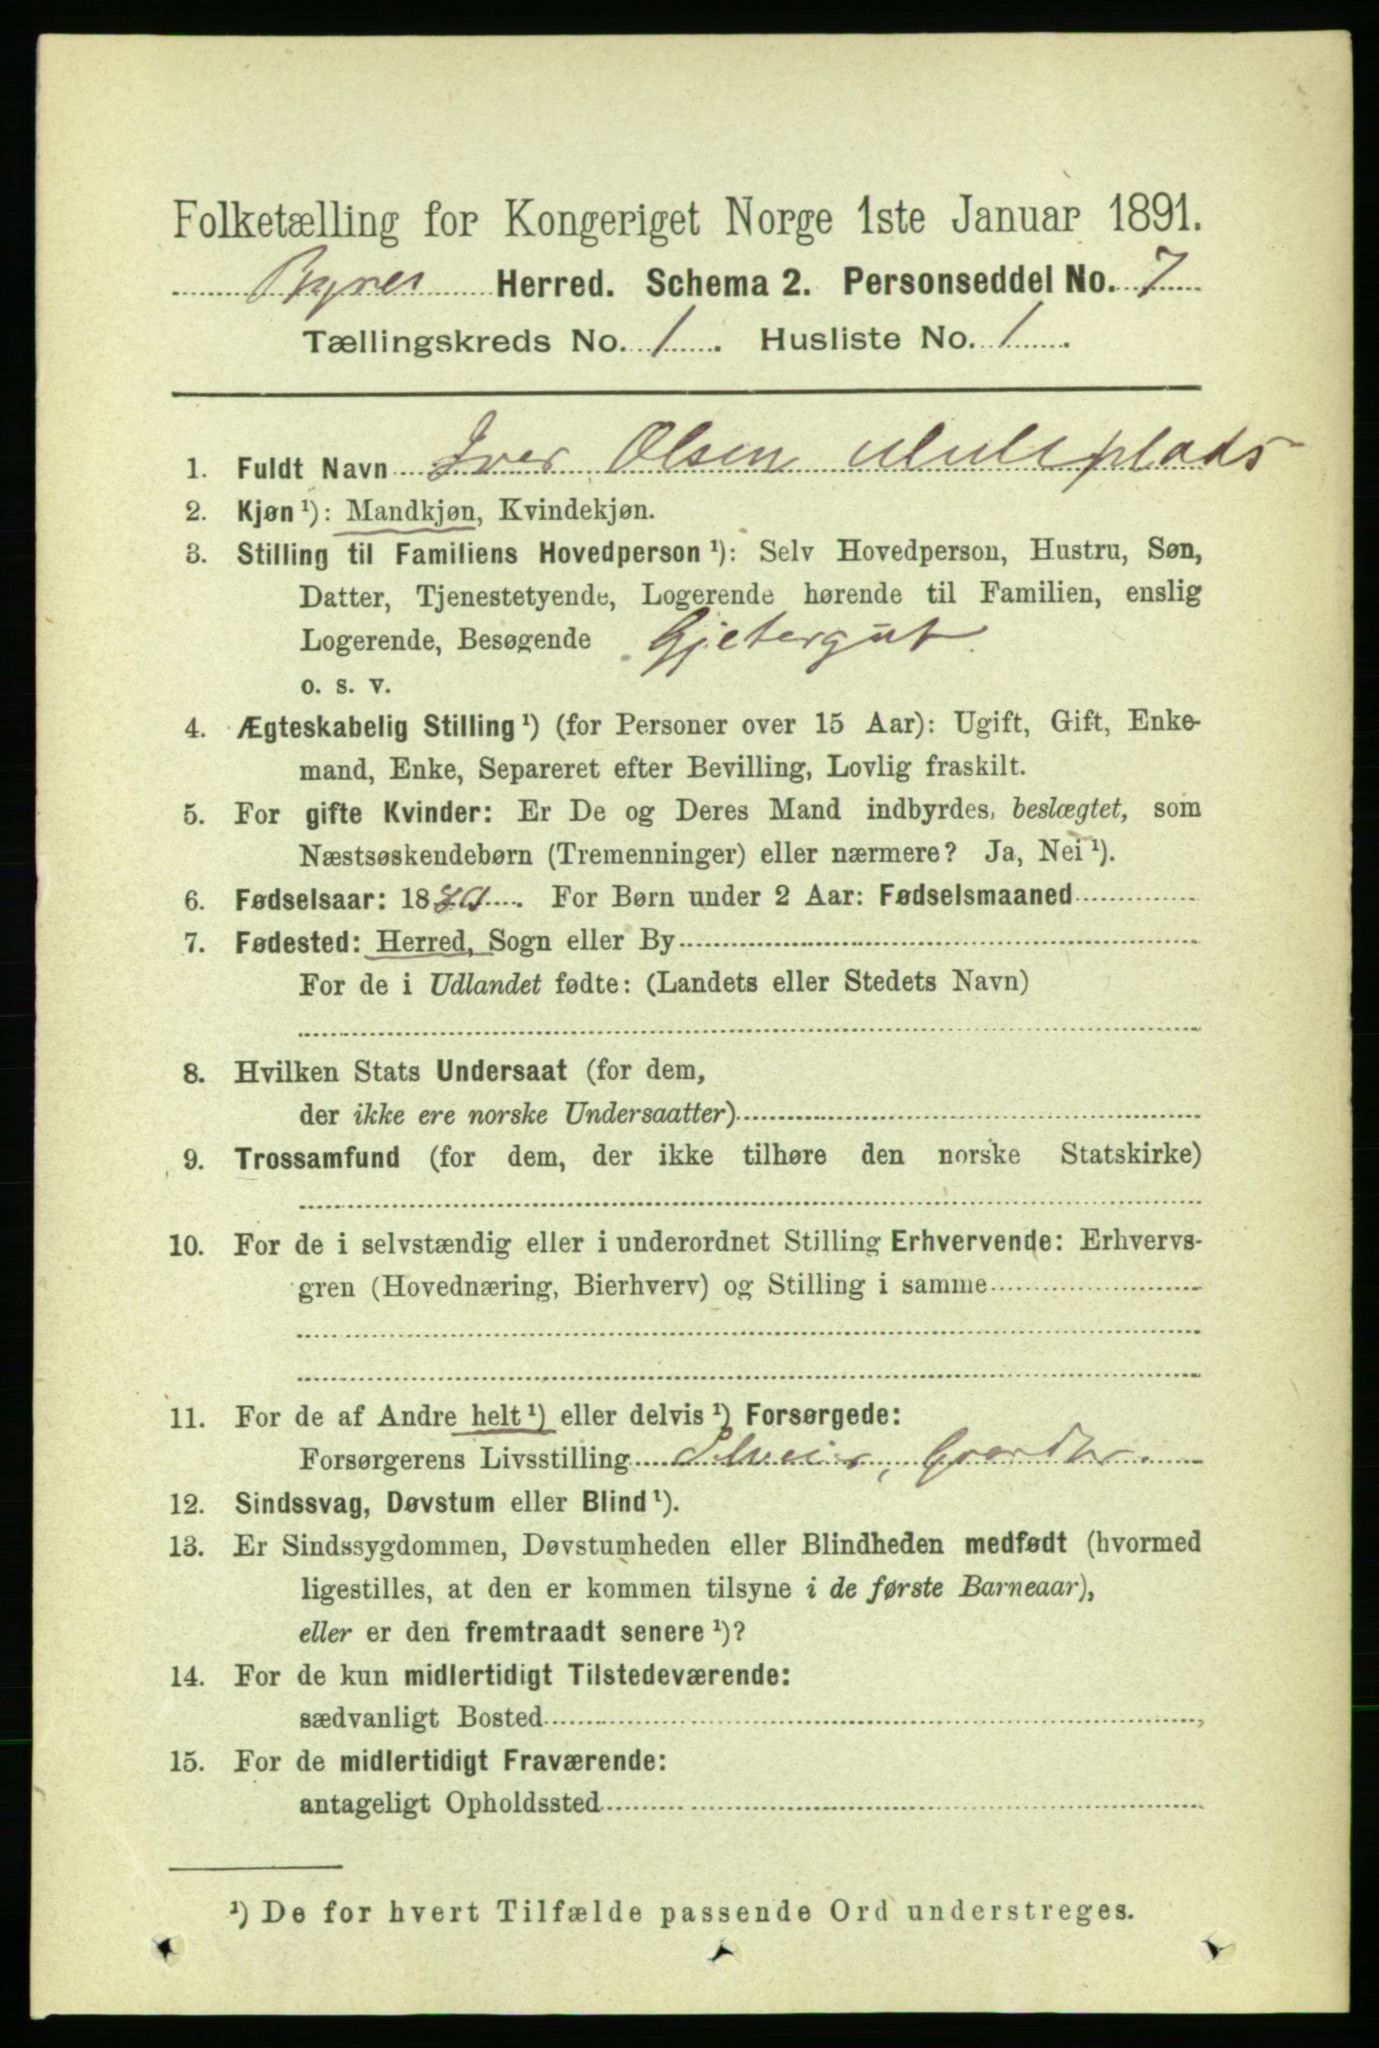 Folketælling for Kongeriget Norge 1ste Januar 1891.
Bynes Herred. Schema 2. Personseddel No. 7
Tællingskreds No. 1. Husliste No. 1.
1. Fuldt Navn Iver Olsen
2. Kjøn ¹): Mandkjøn, Kvindekjøn.
3. Stilling til Familiens Hovedperson ¹): Selv Hovedperson, Hustru, Søn,
Datter, Tjenestetyende, Logerende hørende til Familien, enslig
Logerende, Besøgende Gjetergut
o. s. v.
4. Ægteskabelig Stilling ¹) (for Personer over 15 Aar): Ugift, Gift, Enke-
mand, Enke, Separeret efter Bevilling, Lovlig fraskilt.
5. For gifte Kvinder: Er De og Deres Mand indbyrdes beslægtet, som
Næstsøskendebørn (Tremenninger) eller nærmere? Ja, Nei ¹).
6. Fødselsaar: 18 . For Børn under 2 Aar: Fødselsmaaned
7. Fødested: Herred, Sogn eller By
For de i Udlandet fødte: (Landets eller Stedets Navn)
8. Hvilken Stats Undersaat (for dem,
der ikke ere norske Undersaatter)
9. Trossamfund (for dem, der ikke tilhøre den norske Statskirke)
10. For de i selvstændig eller i underordnet Stilling Erhvervende: Erhvervs-
gren (Hovednæring, Bierhverv) og Stilling i samme
11. For de af Andre helt ¹) eller delvis ¹) Forsørgede:
Forsørgerens Livsstilling Selveier,
12. Sindssvag, Døvstum eller Blind ¹).
13. Er Sindssygdommen, Døvstumheden eller Blindheden medfødt (hvormed
ligestilles, at den er kommen tilsyne i de første Barneaar),
eller er den fremtraadt senere ¹)?
14. For de kun midlertidigt Tilstedeværende:
sædvanligt Bosted
15. For de midlertidigt Fraværende:
antageligt Opholdssted
¹) De for hvert Tilfælde passende Ord understreges.